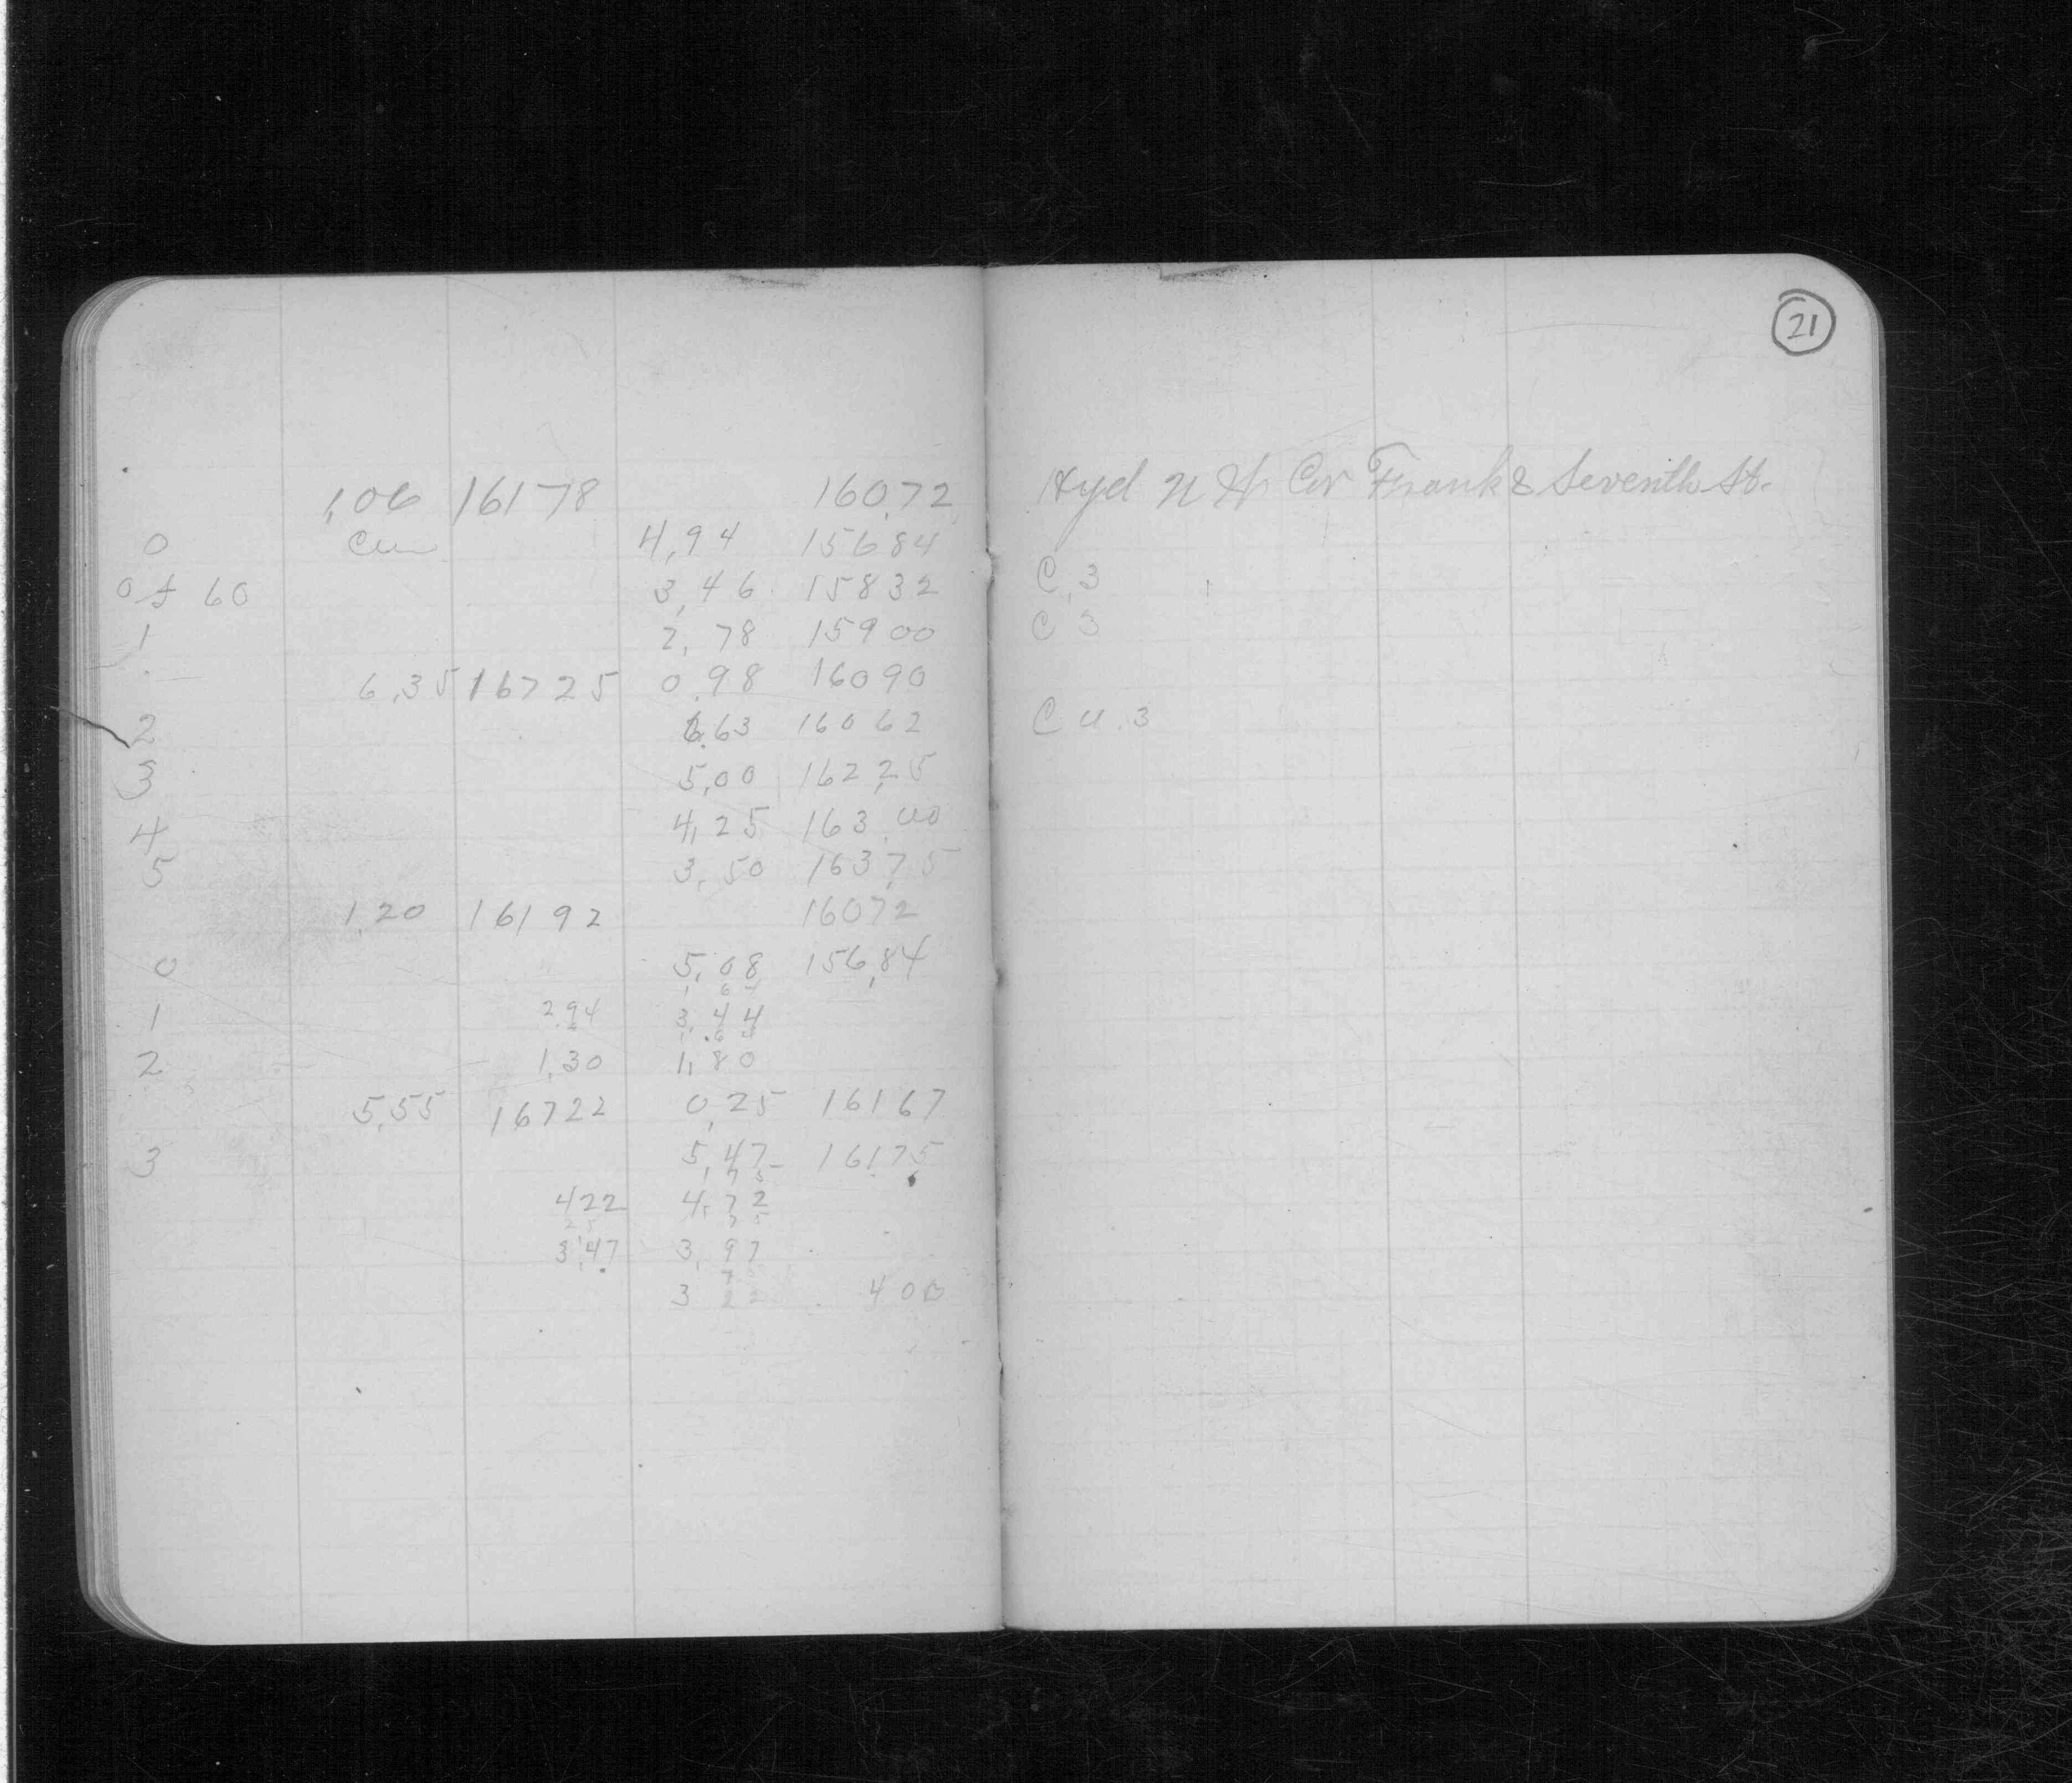 21
1,06 16178 16072 Hyd N W Cor Frank & Seventh St.
0 4,94 15684
0 + 60 3,46 15832 C, 3
1 2,78 15900 C 3
6,35 16725 0,98 16090
2 6.63 16062 C U. 3
3 5,00 162,25
4 4,25 163,00
5 3,50 163,75
1,20 16192 16072
0 5,08 156,84
1 64
1 2.94 3,44
1.64
2 1,30 1,80
5,55 16722 0,25 16167
3 5,47 16175
75
422 4,72
25 75
3.47 3,97
3 22 400